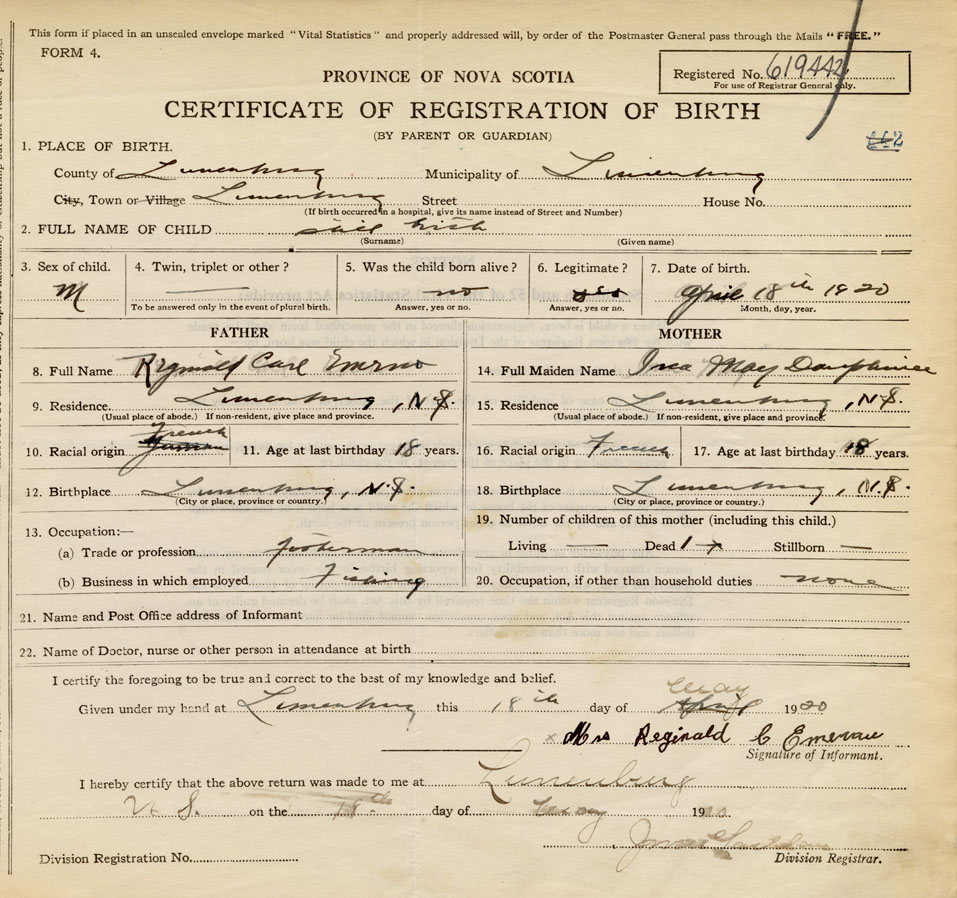 This form if placed in an unsealed envelope marked "Vital Statistics" and properly addressed will, by order of the Postmaster General pass through the Mails "FREE."
FORM 4.
Registered No. 619442
For use of Registrar General only.
PROVINCE OF NOVA SCOTIA
CERTIFICATE OF REGISTRATION OF BIRTH
(BY PARENT OR GUARDIAN)
1. PLACE OF BIRTH.
County of Lunenburg Municipality of Lunenburg
City, Town or Village Lunenburg Street House No.
(If birth occurred in a hospital, give its name instead of Street and Number)
2. FULL NAME OF CHILD still birth
(Surname) (Given name)
3. Sex of child. 4. Twin, triplet or other? 5. Was the child born alive? 6. Legitimate? 7. Date of birth.
M no yes April 18th 1920
To be answered only in the event of plural birth. Answer, yes or no. Answer, yes or no. Month, day, year.
FATHER MOTHER
8. Full Name Reginald Carl 14. Full Maiden Name May Dauphinee
9. Residence Lunenburg, N.S. 15. Residence Lunenburg, N.S.
(Usual place of abode.) If non-resident, give place and province. (Usual place of abode.) If non-resident, give place and province.
French
10. Racial origin German 11. Age at last birthday 18 years. 16. Racial origin French 17. Age at last birthday 18 years.
12. Birthplace Lunenburg, N.S. 18. Birthplace Lunenburg, N.S.
(City or place, province or country.) (City or place, province or country.)
13. Occupation:— 19. Number of children of this mother (including this child.)
(a) Trade or profession Living — Dead 1 Stillborn —
(b) Business in which employed Fishing 20. Occupation, if other than household duties none
21. Name and Post Office address of Informant
22. Name of Doctor, nurse or other person in attendance at birth
I certify the foregoing to be true and correct to the best of my knowledge and belief.
May
Given under my hand at Lunenburg this 18th day of April 1920
x Mrs Reginald C
Signature of Informant.
I hereby certify that the above return was made to me at Lunenburg
N.S. on the 18th day of May 1920
Division Registration No. Division Registrar.